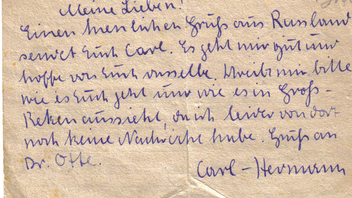 Meine Lieben!
Einen herzlichen Gruß aus Russland
sendet Euch Carl. Es geht mir gut und
hoffe von Euch dasselbe. Schreibt mir bitte
wie es Euch geht und wie es in Groß-
Reken aussieht, da ich leider von dort
noch keine Nachricht habe. Gruß an
Dr. Otte.
Carl-Hermann